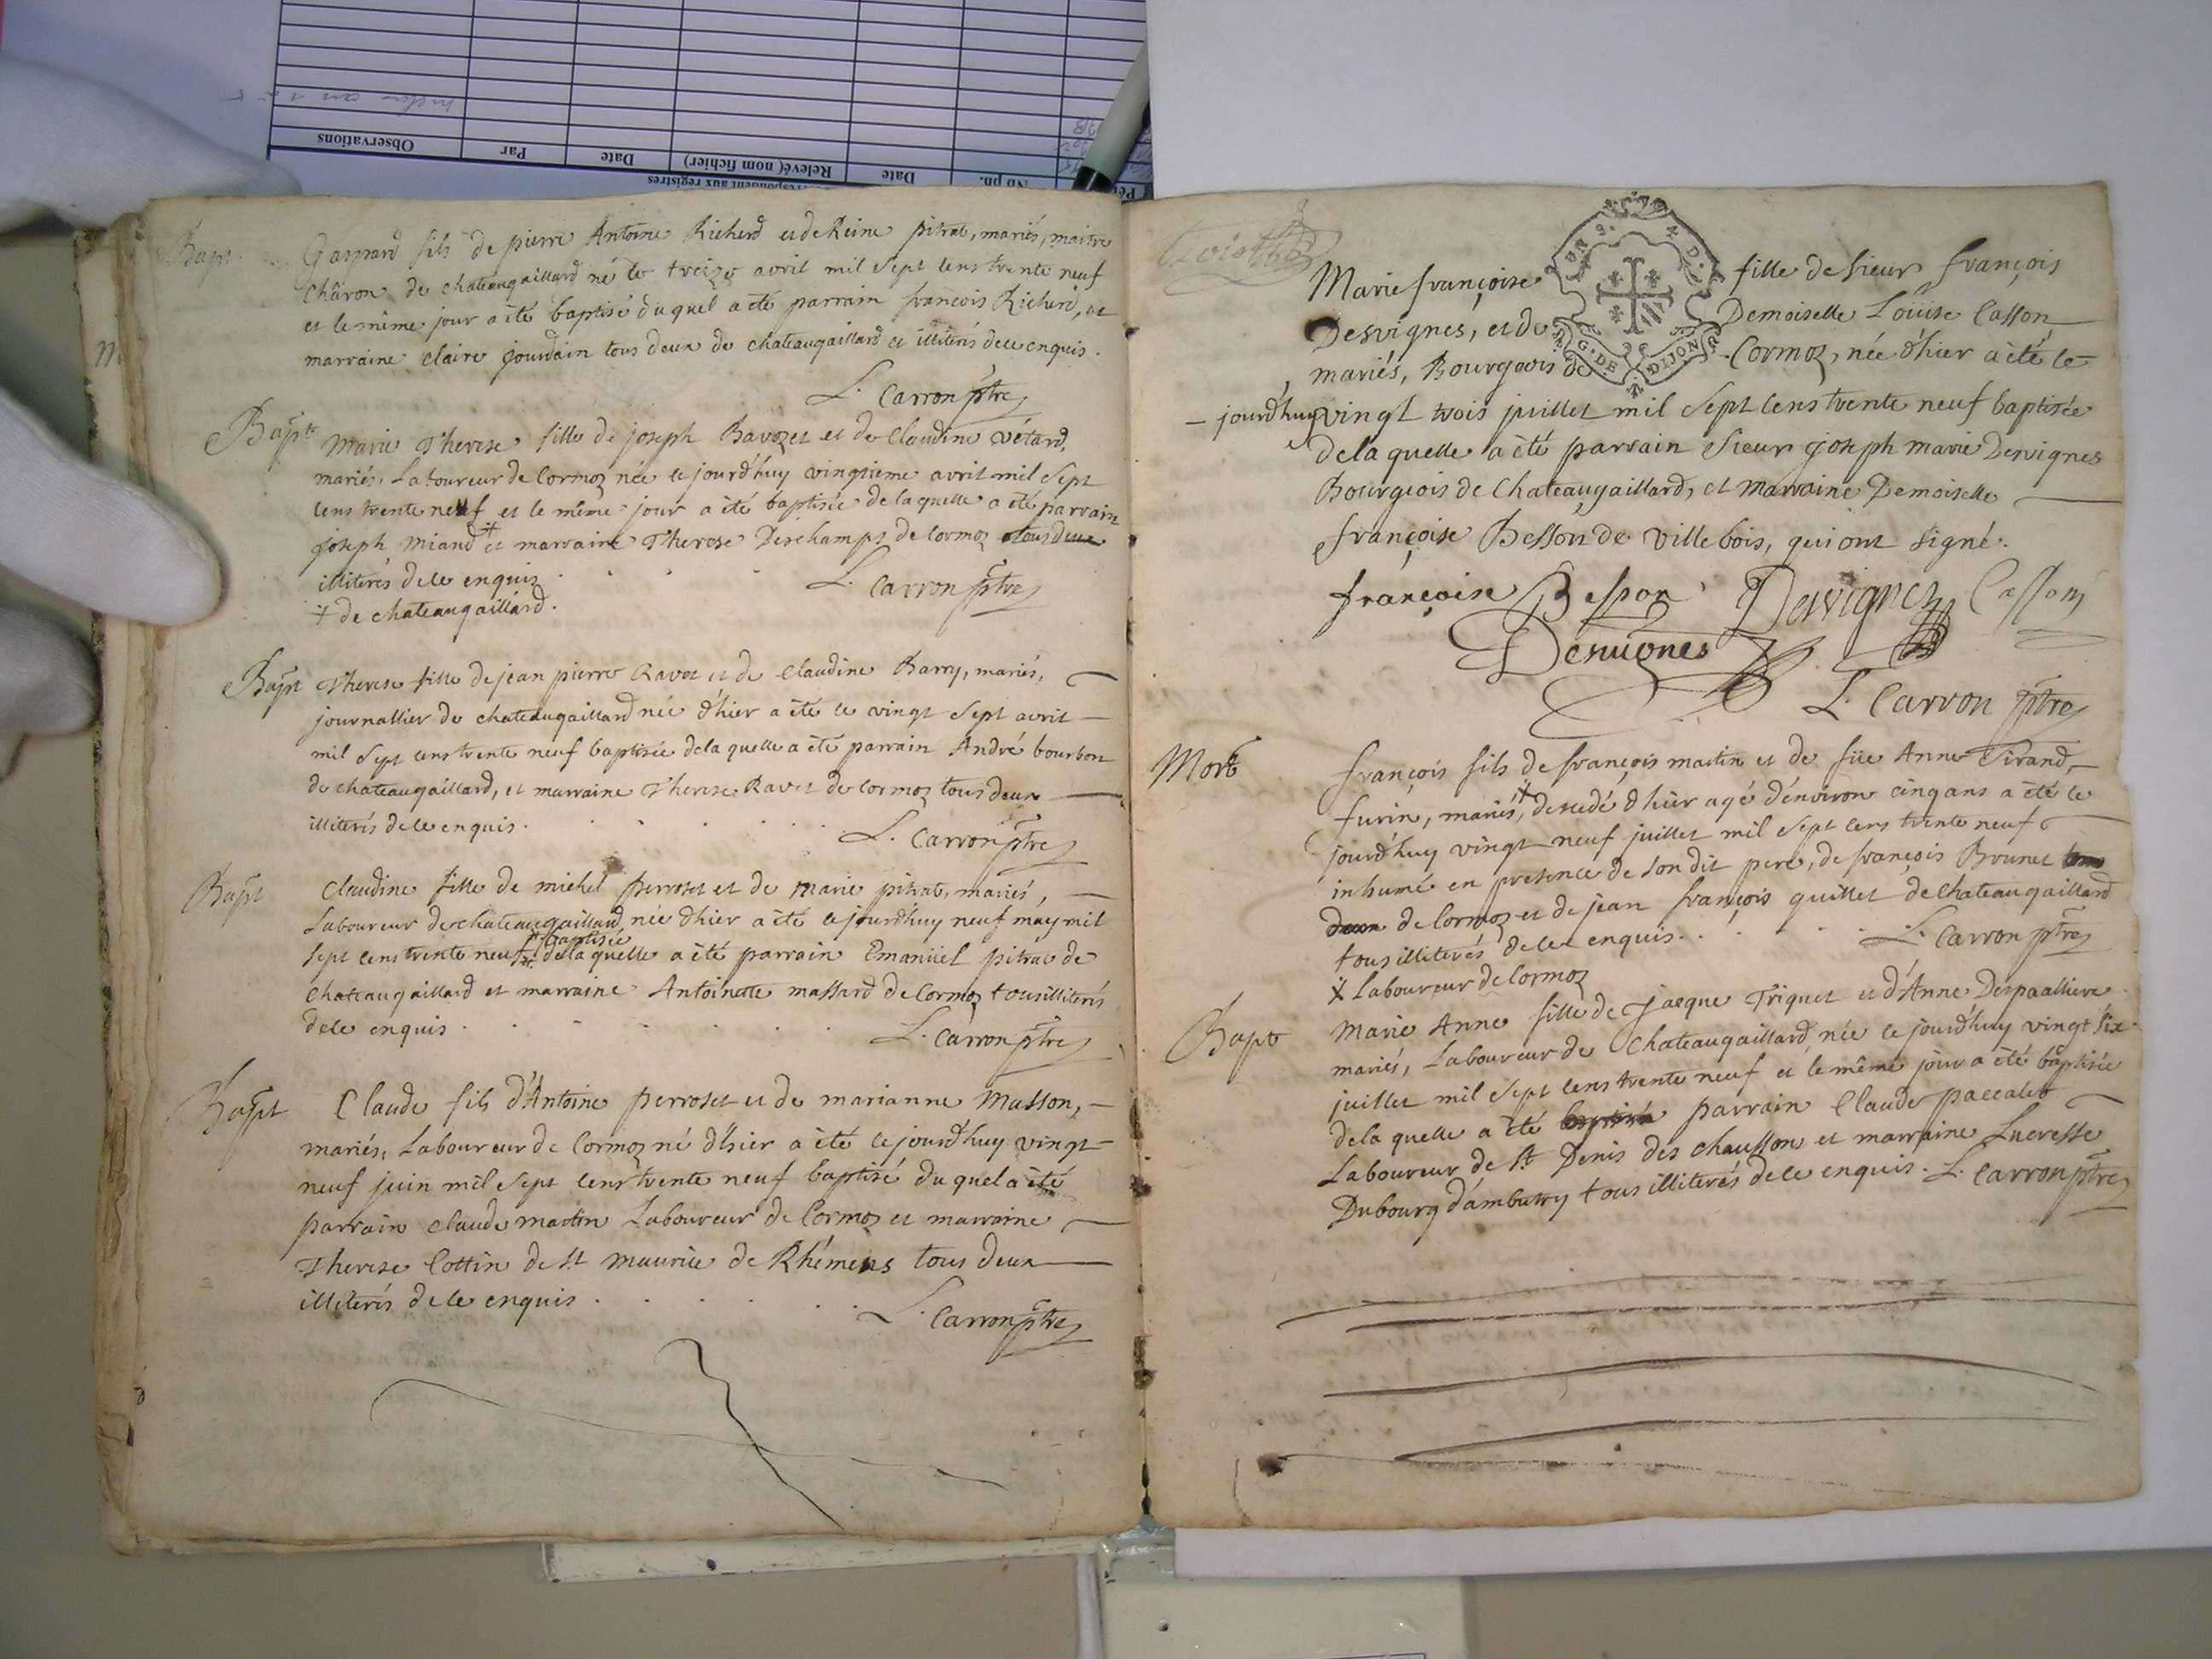 Observations
Par
Date
Relevé (nom fichier)
Date
Nb ph.
Bapt
Gaspard fils de pierre Antoine Richerd et de Reine pitrat, mariés, maitre
Châron de chateaugaillard né le treize avril mil sept cens trente neuf
et le même jour a été baptisé duquel a été parrain françois Richerd, et
marraine claire jourdain tous deux de chateaugaillard et illiterés de ce enquis.
L. Carron ptre
Bapt
Marie Therese fille de joseph Bavozet et de Claudine vétard,
mariés, Laboureur de Cormoz née ce jourd'huy vingtieme avril mil sept
cens trente neuf et le même jour a été baptisée de laquelle a été parrain
joseph Miand + et marraine Therese Deschamps de Cormoz tous deux
illiterés de ce enquis
L. Carron ptre
+ de chateaugaillard.
Bapt
Therese fille de jean pierre Ravet et de Claudine Barry, mariés,
journallier de chateaugaillard née d'hier a été ce vingt sept avril
mil sept cens trente neuf baptisée de la quelle a été parrain André bourbon
de chateaugaillard, et marraine Therese Ravet de Cormoz tous deux
illiterés de ce enquis.
L. Carron ptre
Bapt
Claudine fille de michel perroset et de marie pitrat, mariés,
Laboureur de chateaugaillard née d'hier a été ce jourd'huy neuf may mil
baptisée
sept cens trente neuf de la quelle a été parrain Emanüel pitrat de
Chateaugaillard et marraine Antoinette massard de Cormoz tous illiterés
de ce enquis.
L. Carron ptre
Bapt
Claude fils d'Antoine perroset et de marianne Masson,
mariés, Laboureur de Cormoz né d'hier a été ce jourd'huy vingt
neuf juin mil sept cens trente neuf baptisé du quel a été
parrain Claude martin Laboureur de Cormoz et marraine
Therese Cottin de St maurice de Rhémens tous deux
illiterés de ce enquis.
L. Carron ptre
G. DE DIJON
Marie françoise fille de sieur françois
Desvignes, et de Demoiselle Loüise Casson
mariés, Bourgeois de Cormoz, née d'hier a été ce
jourd'huy vingt trois juillet mil sept cens trente neuf baptisée
de la quelle a été parrain sieur joseph marie Desvignes
Bourgeois de Chateaugaillard, et marraine Demoiselle
françoise Besson de villebois, qui ont signé.
françoise Besson Desvignes Casson
Desvignes
L. Carron ptre
Mort
françois fils de françois martin et de füe Anne Sirand,
furin, mariés, + decedé d'hier agé d'environ cinq ans a été ce
jourd'huy vingt neuf juillet mil sept cens trente neuf
inhumé en presence de son dit pere, de françois Brunet tous
deux de Cormoz et de jean françois quillet de Chateaugaillard
tous illiterés de ce enquis.
L. Carron ptre
+ Laboureur de Cormoz
Bapt
Marie Anne fille de jacque Triquet et d'Anne Despaalliere
mariés, Laboureur de Chateaugaillard née ce jourd'huy vingt six
juillet mil sept cens trente neuf et le même jour a été baptisée
de la quelle a été baptisée parrain Claude paccalet
Laboureur de St Denis des chausson et marraine Lucresse
Dubourg d'ambutry tous illiterés de ce enquis. L. Carron ptre